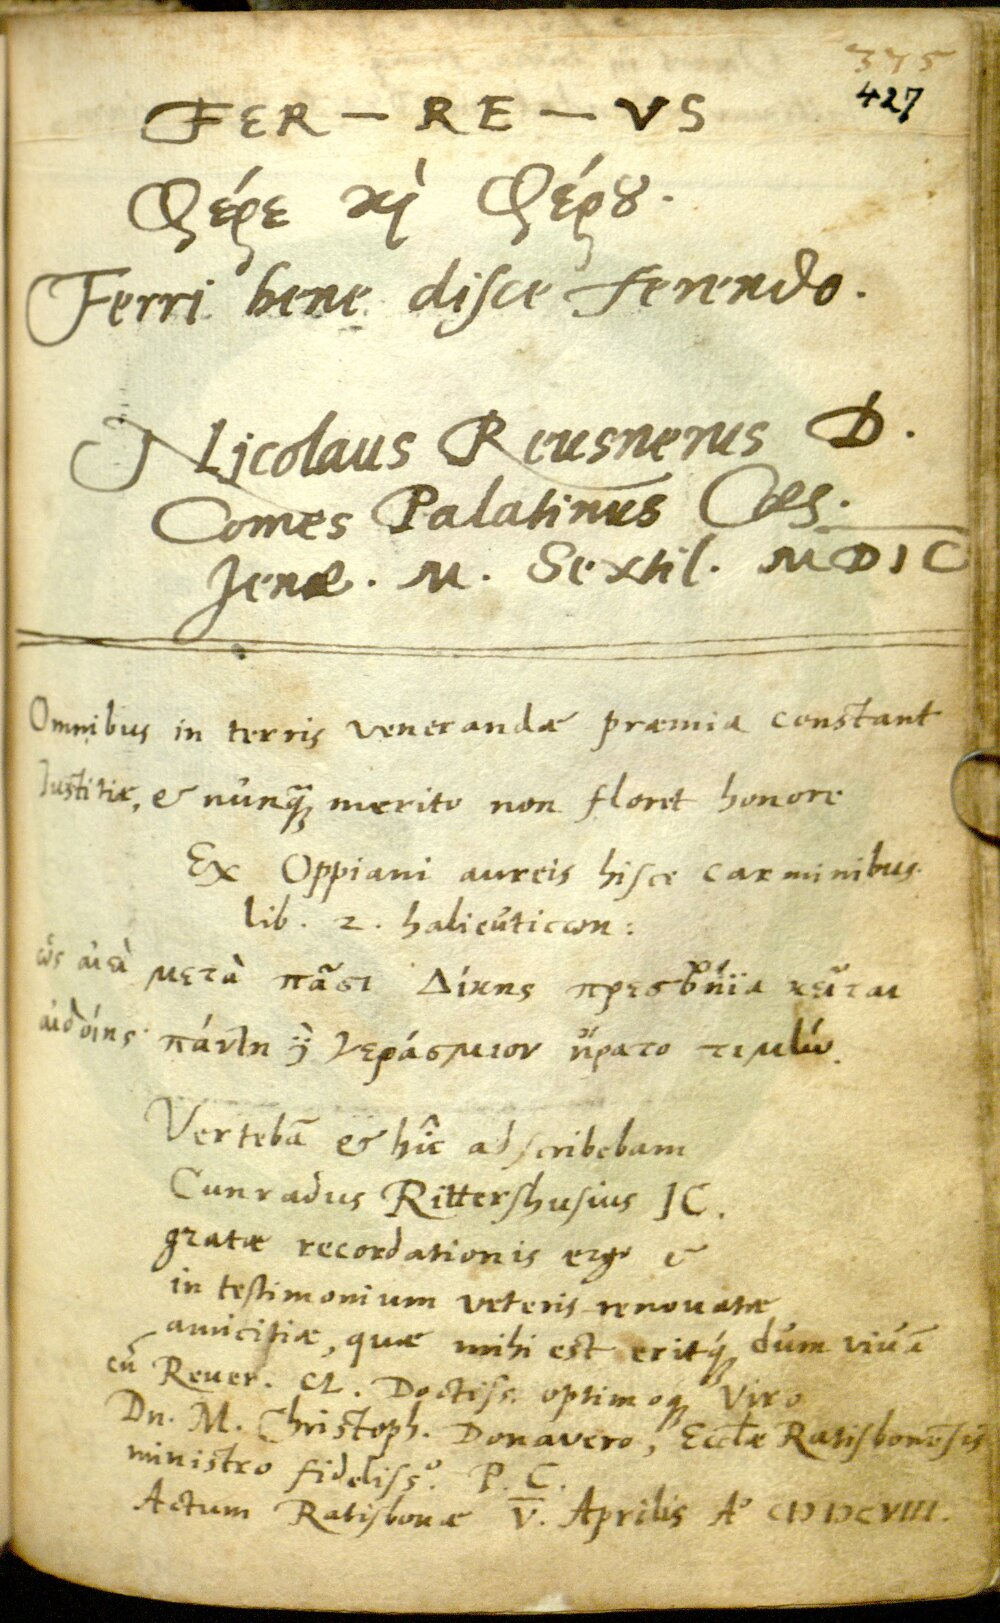 375
427
FER — RE — VS
Φέρε κὶ Φέρȣ.
Ferri bene disce ferendo.
Nicolaus Reusnerus D.
Comes Palatinus Cæs.
Jenæ. M. Sextil. MDIC
Omnibus in terris venerandæ præmia constant
Justitiæ, & nunqua̅q; merito non floret honore
Ex Oppiani aureis hisce carminibus
lib. 2. halieuticωn:
ὡς αἰεὶ μετὰ πᾶσι Δίκης πρεσβήϊα κεῖται
αἰδοίης· πάντη γεράσμιον ἤρατο τιμὴν.
Vertebā & hûc adscribebam
Cunradus Rittershusius JC.
gratæ recordationis ergo &
in testimonium veteris renovatæ
amicitiæ, quæ mihi est eritq́; dum vivā
cū Rever. Cl. Doctiss. optimoq; Viro
Dn. M. Christoph. Donavero, Ecclæ Ratisbonēsis
ministro fideliss.º P. C.
Actum Ratisbonæ V. Aprilis Aº CIↃ IↃCVIII.